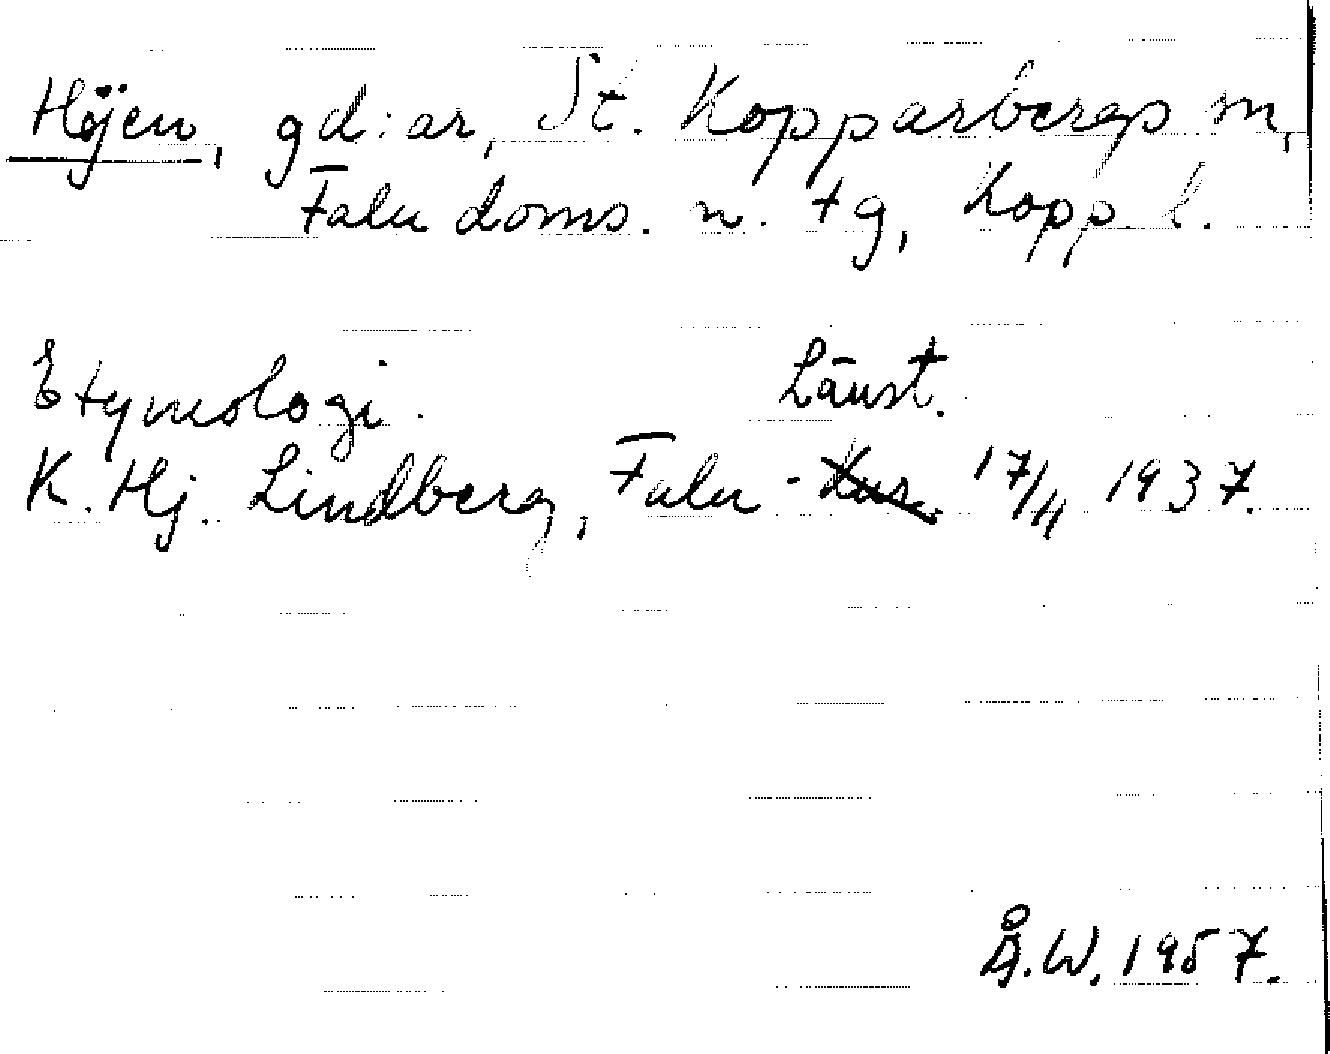 Höjen, gd:ar, St. Kopparbergs sn,
Falu doms. n. tg, Kopp. l.
Etymologi. Länst.
K. Hj. Lindberg, Falu - Kur. 17/4 1937.
Å.W. 1957.